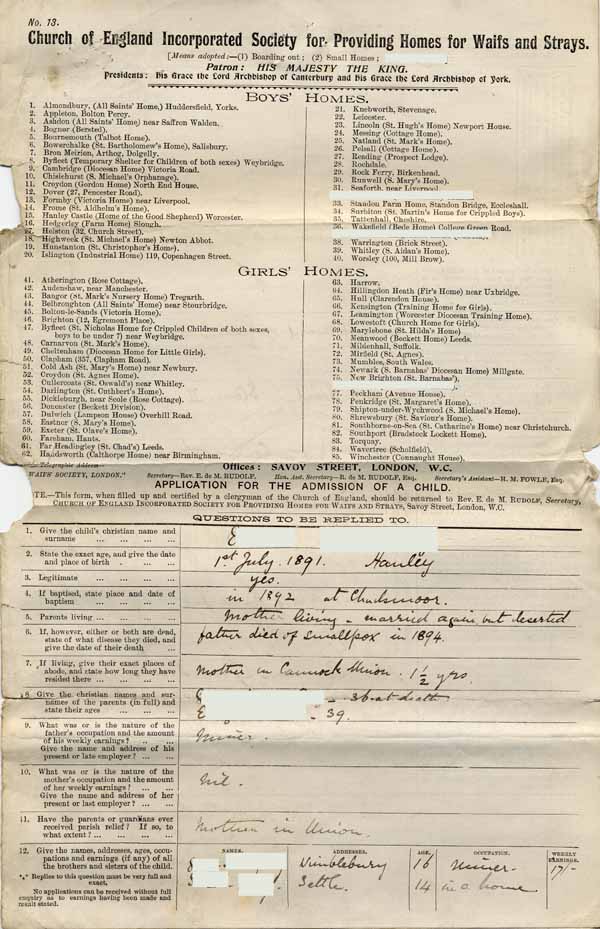 No. 13.
Church of England Incorporated Society for Providing Homes for Waifs and Strays.
[Means adopted:—(1) Boarding out; (2) Small Homes;
Patron: HIS MAJESTY THE KING.
Presidents: His Grace the Lord Archbishop of Canterbury and his Grace the Lord Archbishop of York.
BOYS' HOMES.
1. Almondbury, (All Saints' Home,) Huddersfield, Yorks.
2. Appleton, Bolton Percy.
3. Ashdon (All Saints' Home) near Saffron Walden.
4. Bognor (Bersted).
5. Bournemouth (Talbot Home).
6. Bowerchalke (St. Bartholomew's Home), Salisbury.
7. Bron Meirion, Arthog, Dolgelly.
8. Byfleet (Temporary Shelter for Children of both sexes) Weybridge.
9. Cambridge (Diocesan Home) Victoria Road.
10. Chislehurst (S. Michael's Orphanage).
11. Croydon (Gordon Home) North End House.
12. Dover (27, Pencester Road).
13. Formby (Victoria Home) near Liverpool.
14. Frome (St. Aldhelm's Home).
15. Hanley Castle (Home of the Good Shepherd) Worcester.
16. Hedgerley (Farm Home) Slough.
17. Helston (32, Church Street).
18. Highweek (St. Michael's Home) Newton Abbot.
19. Hunstanton (St. Christopher's Home).
20. Islington (Industrial Home) 119, Copenhagen Street.
21. Knebworth, Stevenage.
22. Leicester.
23. Lincoln (St. Hugh's Home) Newport House.
24. Messing (Cottage Home).
25. Natland (St. Mark's Home).
26. Pelsall (Cottage Home).
27. Reading (Prospect Lodge).
28. Rochdale.
29. Rock Ferry, Birkenhead.
30. Runwell (S. Mary's Home).
31. Seaforth, near Liverpool
33. Standon Farm Home, Standon Bridge, Eccleshall.
34. Surbiton (St. Martin's Home for Crippled Boys).
35. Tattenhall, Cheshire.
36. Wakefield (Bede Home) College Green Road.
38. Warrington (Brick Street).
39. Whitley (S. Aidan's Home).
40. Worsley (100, Mill Brow).
GIRLS' HOMES.
41. Atherington (Rose Cottage).
42. Audenshaw, near Manchester.
43. Bangor (St. Mark's Nursery Home) Tregarth.
44. Belbroughton (All Saints' Home) near Stourbridge.
45. Bolton-le-Sands (Victoria Home).
46. Brighton (12, Egremont Place).
47. Byfleet (St. Nicholas Home for Crippled Children of both sexes,
boys to be under 7) near Weybridge.
48. Carnarvon (St. Mark's Home).
49. Cheltenham (Diocesan Home for Little Girls).
50. Clapham (357, Clapham Road).
51. Cold Ash (St. Mary's Home) near Newbury.
52. Croydon (St. Agnes Home).
53. Cullercoats (St. Oswald's) near Whitley.
54. Darlington (St. Cuthbert's Home).
55. Dickleburgh, near Scole (Rose Cottage).
56. Doncaster (Beckett Division).
57. Dulwich (Lampson House) Overhill Road.
58. Eastnor (S. Mary's Home).
59. Exeter (St. Olave's Home).
60. Fareham, Hants.
61. Far Headingley (St. Chad's) Leeds.
62. Handsworth (Calthorpe Home) near Birmingham.
63. Harrow.
64. Hillingdon Heath (Fir's Home) near Uxbridge.
65. Hull (Clarendon House).
66. Kensington (Training Home for Girls).
67. Leamington (Worcester Diocesan Training Home).
68. Lowestoft (Church Home for Girls).
69. Marylebone (St. Hilda's Home)
70. Meanwood (Beckett Home) Leeds.
71. Mildenhall, Suffolk.
72. Mirfield (St. Agnes).
73. Mumbles, South Wales.
74. Newark (S. Barnabas' Diocesan Home) Millgate.
75. New Brighton (St. Barnabas'),
77. Peckham (Avenue House).
78. Penkridge (St. Margaret's Home).
79. Shipton-under-Wychwood (S. Michael's Home).
80. Shrewsbury (St. Saviour's Home).
81. Southborne-on-Sea (St. Catharine's Home) near Christchurch.
82. Southport (Bradstock Lockett Home).
83. Torquay.
84. Wavertree (Scholfield).
85. Winchester (Connaught House).
Telegraphic Address—
"WAIFS' SOCIETY, LONDON."
Offices: SAVOY STREET, LONDON, W.C.
Secretary—Rev. E. de M. RUDOLF. Hon. Asst. Secretary—R. de M. RUDOLF, Esq. Secretary's Assistant—H. M. FOWLE, Esq.
APPLICATION FOR THE ADMISSION OF A CHILD.
TE.—This form, when filled up and certified by a clergyman of the Church of England, should be returned to Rev. E. de M. RUDOLF, Secretary,
CHURCH OF ENGLAND INCORPORATED SOCIETY FOR PROVIDING HOMES FOR WAIFS AND STRAYS, Savoy Street, London, W.C.
QUESTIONS TO BE REPLIED TO.
1. Give the child's christian name and
surname ... ... ... ...
E
2. State the exact age, and give the date
and place of birth . ... ...
1st July. 1891. Hanley
3. Legitimate ... ... ... ...
yes.
4. If baptised, state place and date of
baptism ... ... ... ...
in 1892 at Chadsmoor.
5. Parents living ... ... ... ...
Mother living - married again but deserted
6. If, however, either or both are dead,
state of what disease they died, and
give the date of their death ...
father died of smallpox in 1894.
7. If living, give their exact places of
abode, and state how long they have
resided there ... ... ... ...
Mother in Cannock Union. 1½ yrs.
8 Give the christian names and sur-
names of the parents (in full) and
state their ages ... ... ...
- 36 at death
E - 39.
9. What was or is the nature of the
father's occupation and the amount
of his weekly earnings? ... ...
Give the name and address of his
present or late employer? ... ...
Miner.
10. What was or is the nature of the
mother's occupation and the amount
of her weekly earnings? ... ...
Give the name and address of her
present or last employer? ... ...
Nil.
11. Have the parents or guardians ever
received parish relief? If so, to
what extent? ... ... ... ...
Mother in Union.
12. Give the names, addresses, ages, occu-
pations and earnings (if any) of all
the brothers and sisters of the child.
*** Replies to this question must be very full and
exact.
No applications can be received without full
enquiry as to earnings having been made and
result stated.
NAMES. ADDRESSES. AGE. OCCUPATION. WEEKLY EARNINGS.
Wimblebury 16 Miner. 17/-
Settle. 14 in a home